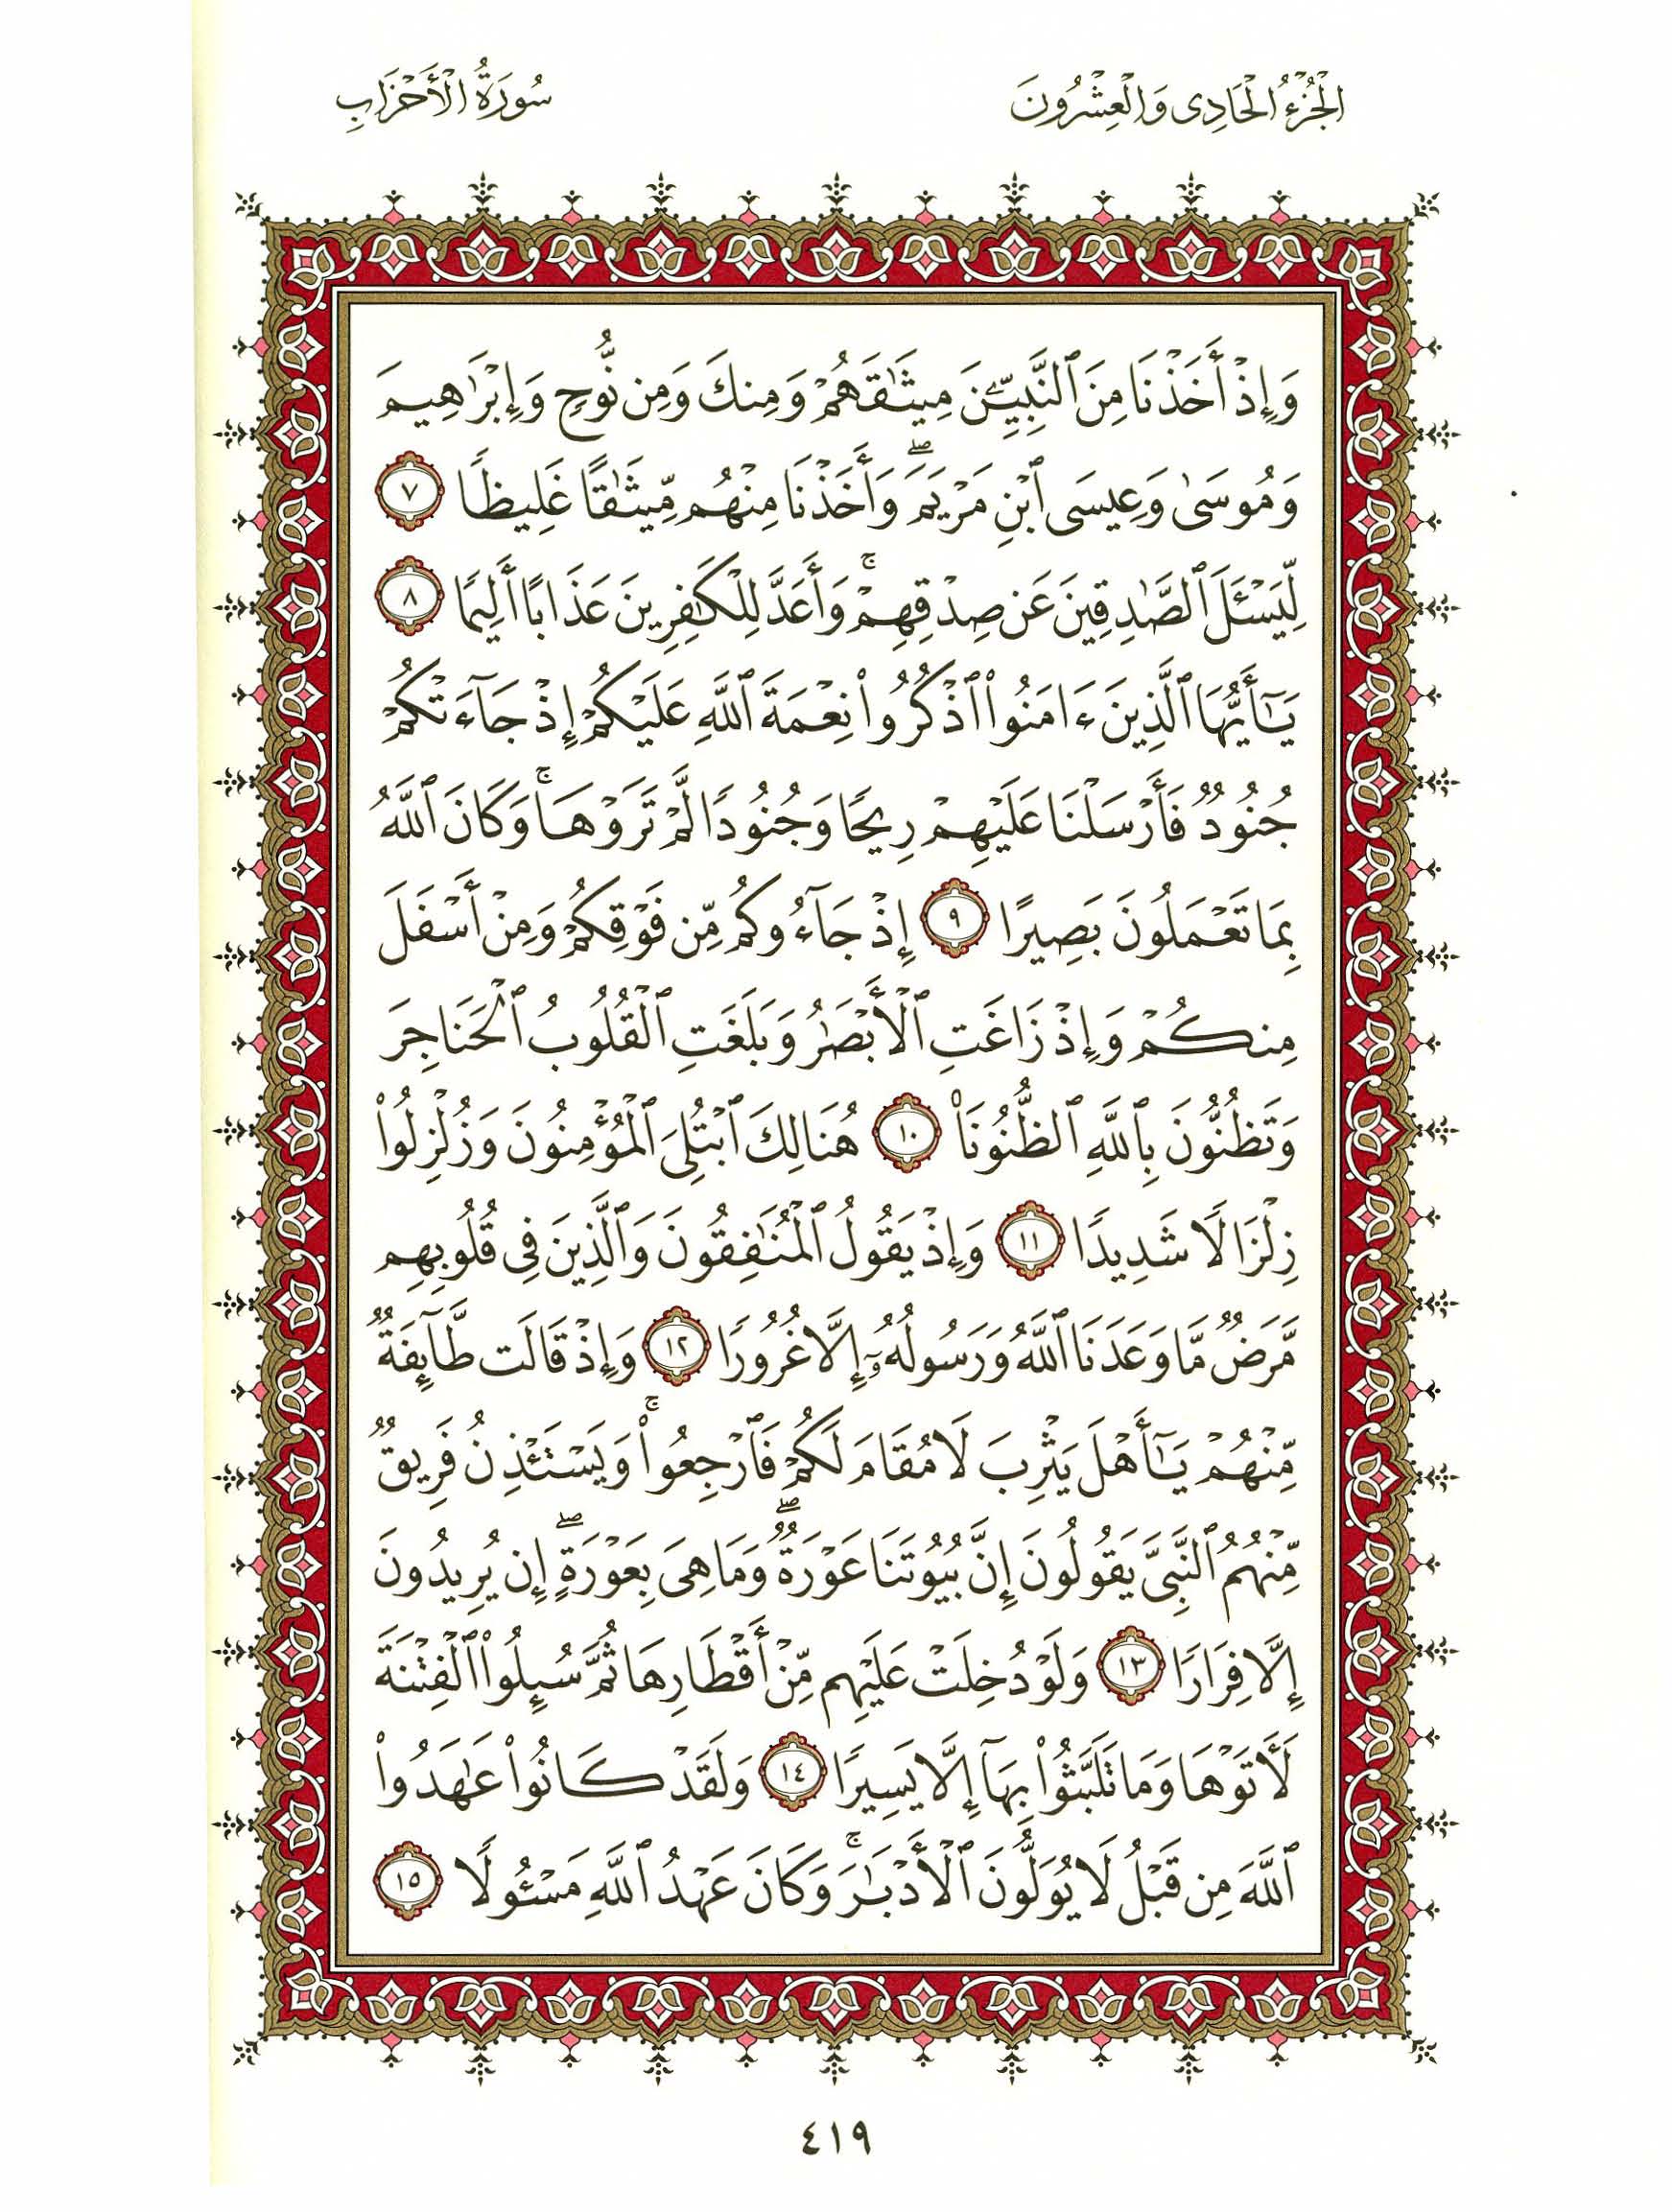 الجزء الحادي والعشرون
سورة الأحزاب
وَإِذْ أَخَذْنَا مِنَ ٱلنَّبِيِّـۧنَ مِيثَـٰقَهُمْ وَمِنكَ وَمِن نُّوحٍ وَإِبْرَٰهِيمَ
وَمُوسَىٰ وَعِيسَى ٱبْنِ مَرْيَمَ ۖ وَأَخَذْنَا مِنْهُم مِّيثَـٰقًا غَلِيظًا ٧
لِّيَسْـَٔلَ ٱلصَّـٰدِقِينَ عَن صِدْقِهِمْ ۚ وَأَعَدَّ لِلْكَـٰفِرِينَ عَذَابًا أَلِيمًا ٨
يَـٰٓأَيُّهَا ٱلَّذِينَ ءَامَنُوا۟ ٱذْكُرُوا۟ نِعْمَةَ ٱللَّهِ عَلَيْكُمْ إِذْ جَآءَتْكُمْ
جُنُودٌ فَأَرْسَلْنَا عَلَيْهِمْ رِيحًا وَجُنُودًا لَّمْ تَرَوْهَا ۚ وَكَانَ ٱللَّهُ
بِمَا تَعْمَلُونَ بَصِيرًا ٩ إِذْ جَآءُوكُم مِّن فَوْقِكُمْ وَمِنْ أَسْفَلَ
مِنكُمْ وَإِذْ زَاغَتِ ٱلْأَبْصَـٰرُ وَبَلَغَتِ ٱلْقُلُوبُ ٱلْحَنَاجِرَ
وَتَظُنُّونَ بِٱللَّهِ ٱلظُّنُونَا۠ ١٠ هُنَالِكَ ٱبْتُلِىَ ٱلْمُؤْمِنُونَ وَزُلْزِلُوا۟
زِلْزَالًا شَدِيدًا ١١ وَإِذْ يَقُولُ ٱلْمُنَـٰفِقُونَ وَٱلَّذِينَ فِى قُلُوبِهِم
مَّرَضٌ مَّا وَعَدَنَا ٱللَّهُ وَرَسُولُهُۥٓ إِلَّا غُرُورًا ١٢ وَإِذْ قَالَت طَّآئِفَةٌ
مِّنْهُمْ يَـٰٓأَهْلَ يَثْرِبَ لَا مُقَامَ لَكُمْ فَٱرْجِعُوا۟ ۚ وَيَسْتَـْٔذِنُ فَرِيقٌ
مِّنْهُمُ ٱلنَّبِىَّ يَقُولُونَ إِنَّ بُيُوتَنَا عَوْرَةٌ ۖ وَمَا هِىَ بِعَوْرَةٍ ۖ إِن يُرِيدُونَ
إِلَّا فِرَارًا ١٣ وَلَوْ دُخِلَتْ عَلَيْهِم مِّنْ أَقْطَارِهَا ثُمَّ سُئِلُوا۟ ٱلْفِتْنَةَ
لَـَٔاتَوْهَا وَمَا تَلَبَّثُوا۟ بِهَآ إِلَّا يَسِيرًا ١٤ وَلَقَدْ كَانُوا۟ عَـٰهَدُوا۟
ٱللَّهَ مِن قَبْلُ لَا يُوَلُّونَ ٱلْأَدْبَـٰرَ ۚ وَكَانَ عَهْدُ ٱللَّهِ مَسْـُٔولًا ١٥
٤١٩